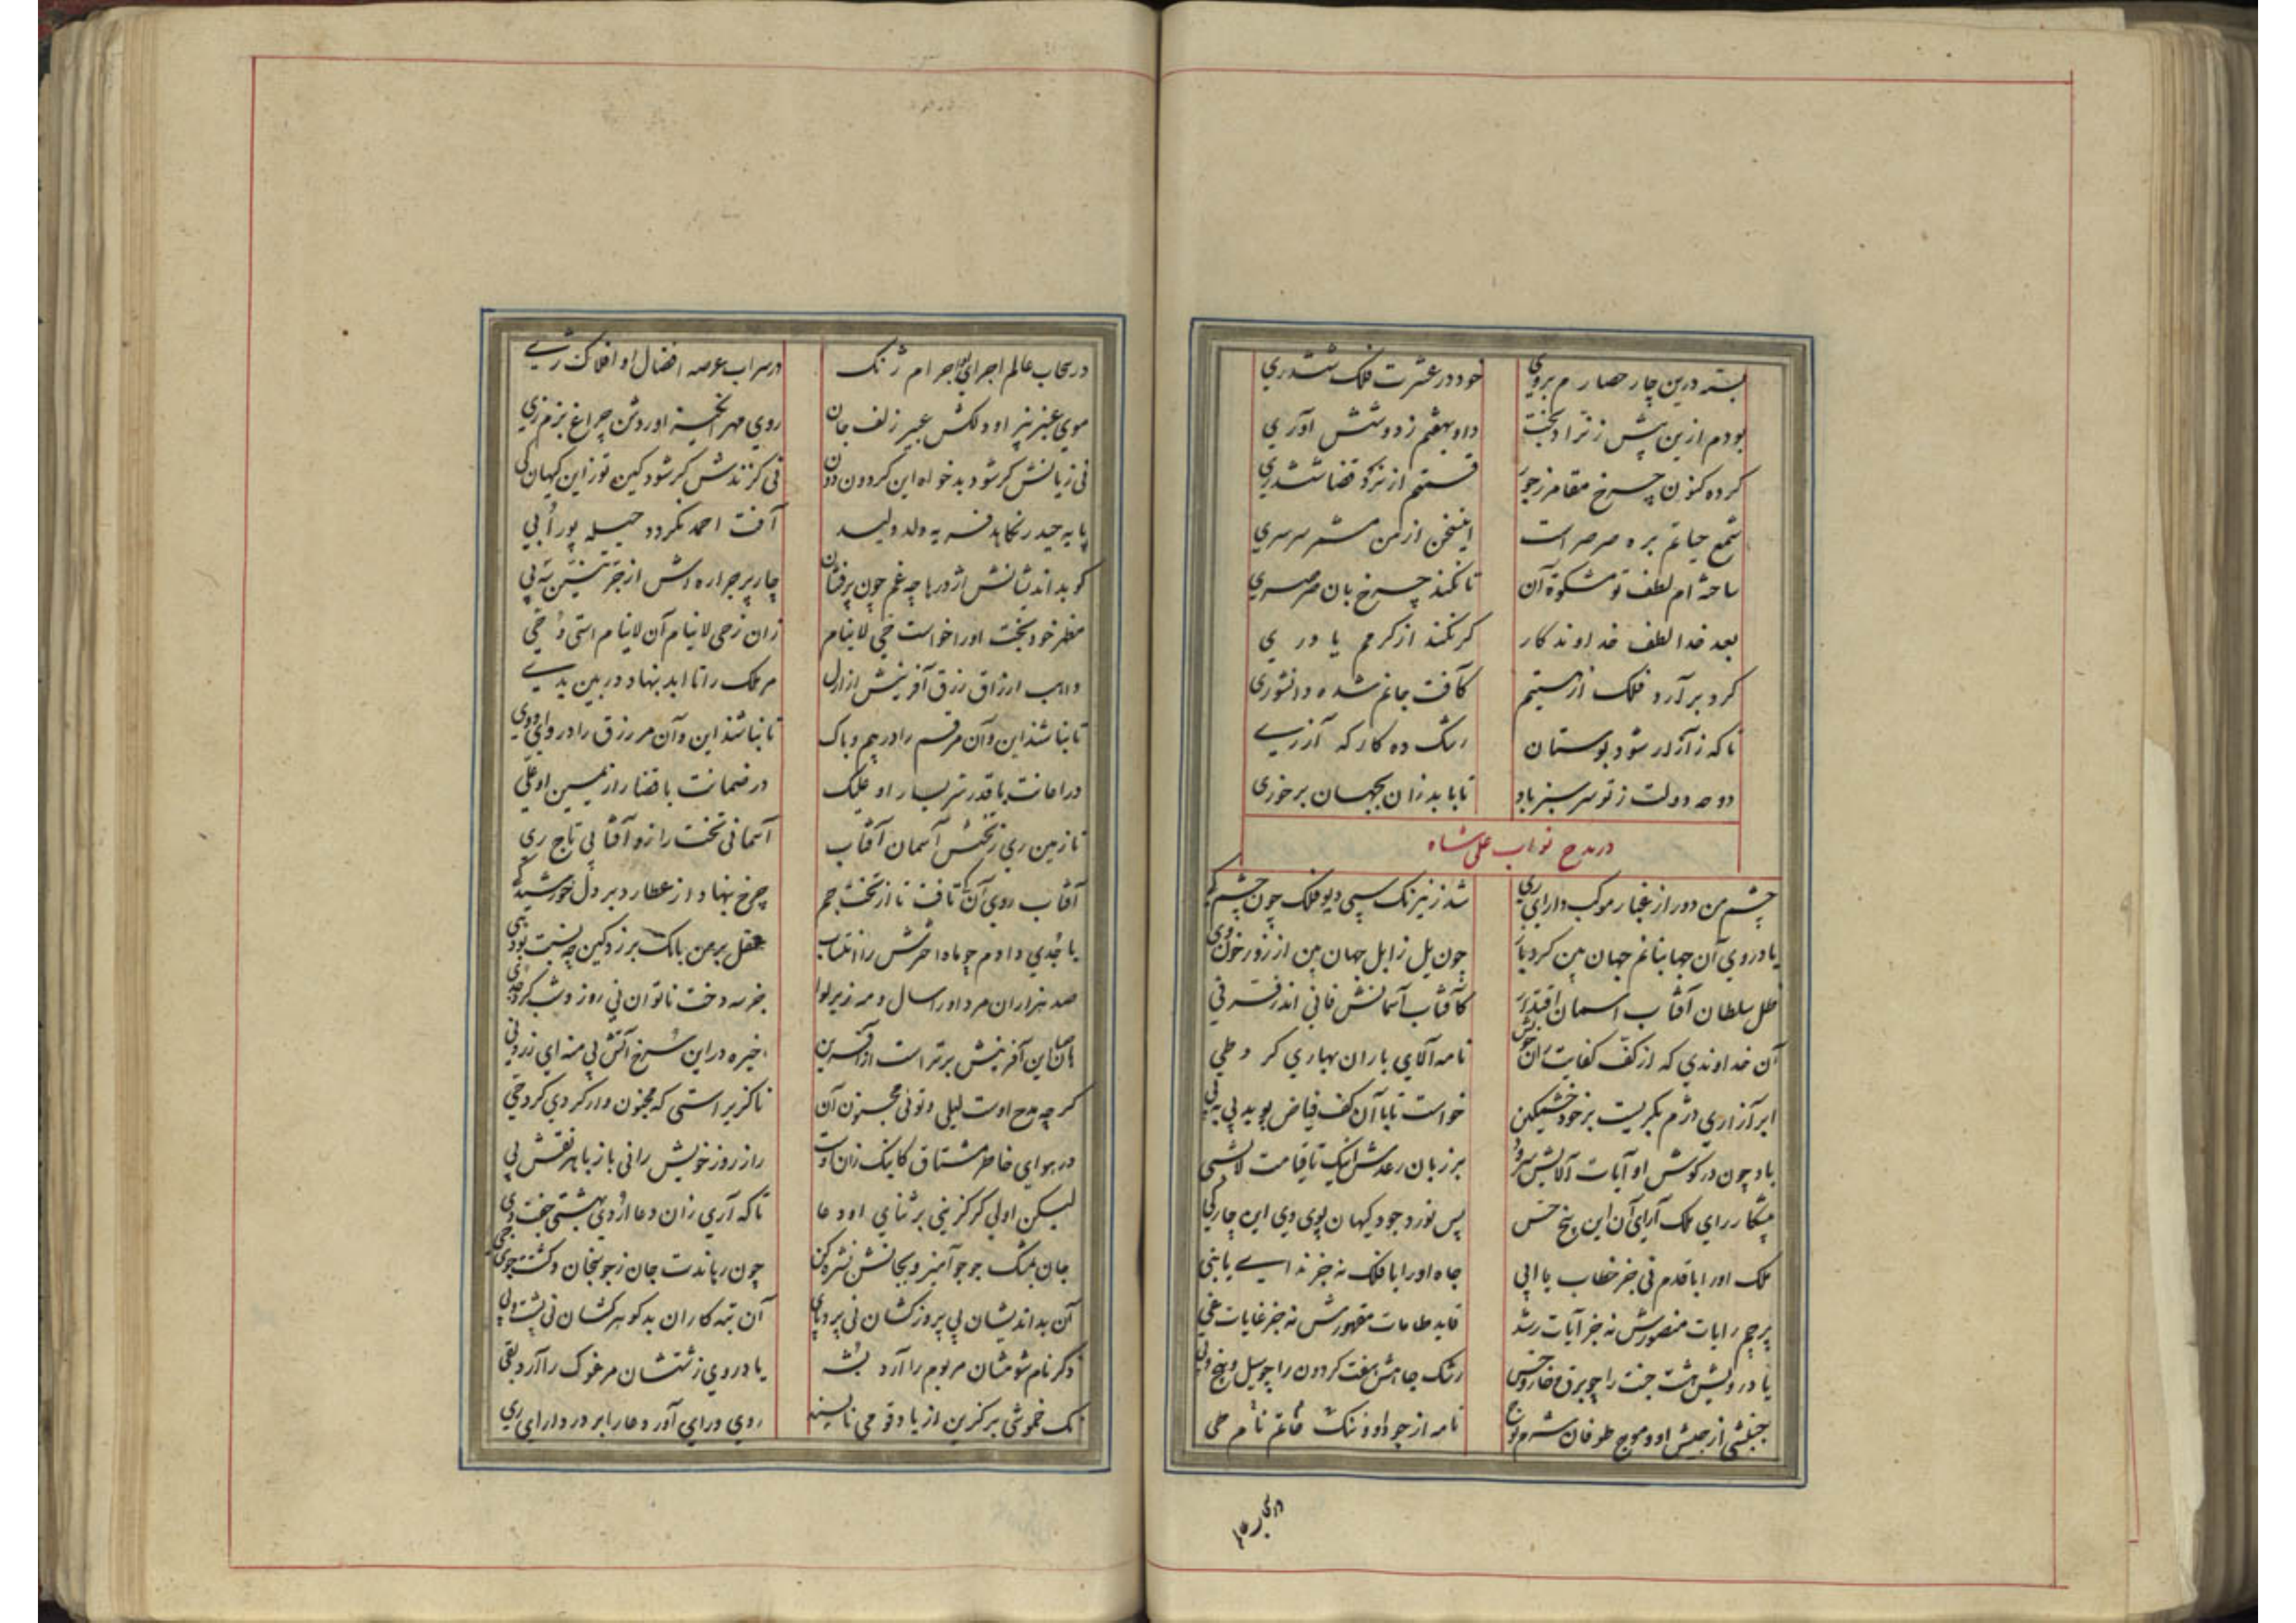 بسته درین چار حصارم بروی خود در عشرت فلک ششدری
بودم ازین پیش ز نراد بخت داو بهفتم زدو شش آوری
کرده کنون چرخ مقامر ز جور قسمتم از نرد قضا ششدری
شمع حیاتم بره صرصر است اینسخن از من مشمر سرسری
ساخته ام لطف تو مشکوة آن تا نکند چرخ بان صرصری
بعد خدا لطف خداوندکار کر نکند از کرمم یاوری
کرد برآرد فلک از هستیم کافت جانم شده دانشوری
تا که ز آزار شود بوستان رشک ده کارکه آزری
دوحه دولت ز تو سرسبز باد تا بابد زان بجهان برخوری
در مدح نواب علی شاه
چشم من دور از غبار موکب دارای ری شد ز نیرنک سپی دیو فلک چون چشم
یا در روی آن جهانبانم جهان بین کرد باز چون یل زابل جهان بین از زور خون
ظل سلطان آفتاب اسمان اقتدار کافتاب آسمانش فانی اندر فر فی
آن خداوندی که از کف کفایت نامه آلای باران بهاری کرد طی
ابر آزاری دژم بکریست بر خود خشمکین خواست تا با آن کف فیاض پوید پی به پی
باد چون در کوش او آیات آلایش سرود بر زبان رعدش اینک تا قیامت لاشی
پیشکار رای ملک آرای آن این پنج حس پس نورد جود کیهان پوی وی این چار
ملک او را با قدم نی جز خطاب یا ابی جاه او را با فلک نه جز ندای یا بنی
پرچم رایات منصورش نه جز آیات رشد قاید طاعات مقهورش نه جز غایات غی
یا در رویش هشت جنت را چو برق خار و خس رشک جاهش هفت کردون را چو سیل و بیخ
جنبشی از جیش او و موج طوفان شرم نوح نامه از جود او و ننک خاتم نام طی
در سحاب
در سحاب عالم اجرای اجرام ژنک در سراب عرصه افضال او افلاک رشی
موی عنبر بیز او دلکش عبیر زلف جان روی مهر انکیز او روشن چراغ بزم ری
نی زیانش کر شود بدخواه این کردون دون نی کزندش کر شود کین توز این کیهان کی
پایه حیدر نکاهد فریه ولد ولید آفت احمد نکردد حیله پور ابی
کو بداندیشانش اژدرها چه غم چون پرفشان چار پر جراره اش از
مظهر خود بخت او را خواست حی لاینام زان ز حی لاینام آن لاینام استی و حی
واهب ارزاق رزق آفرینش از ازل مر ملک را تا ابد بنهاد در بین یدی
تا نباشد این و آن مر قسم را در هم و باک تا نباشد این و آن مر رزق را در وای و وی
در اعانت با قدر سر یسار او علیک در ضمانت با قضا راز یمین او علی
تا زمین ری ز تختش آسمان آفتاب آسمانی تخت را زو آفتابی تاج ری
آفتاب روی آن تافت تا از تخت جم چرخ بنهاد از عطارد بر دل خورشید
با جدی دادم چو ماه اخترش را انتساب عقل بر من بانک بر زد کین چه نسبت بود
صد هزاران مرد او را سال و مه زیر لوا جز سه دخت ناتوان نی روز و شب کرد جدی
هان این آفرینش برتر است از آفرین خیره در این شرخ آتش پی منه ای
کر چه مدح اوست لیلی و توئی مجنون آن ناکزیر استی که مجنون وار کردی کرد حی
در هوای خاطر مشتاق کاینک زان اوست راز روز خویش رانی باز با هر نقش پی
لیکن اولی کر کزینی بر ثنای او دعا تا که آری زان دعا اردی بهشتی جفت دی
جان بمشک جوجو آمیز و بجانش نشره کن چون رهاندت جان ز جوبنجان و کشت جوی
آن بداندیشان پی پروزکشان نی پر و پای آن تبه کاران بدکوهرکشان نی پشت و پی
ذکر نام شومشان مر بوم را آرد یا در روی زشتشان مر غوک را آرد بقی
لک خموشی برکزین از یاوه می نالید روی در ایی آور دعا را بر در دارای ری